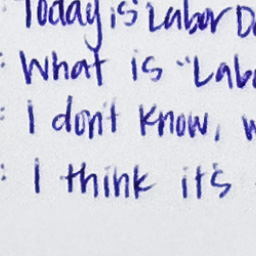 : Today is Labor D
: What is "Labo
: I don't know, w
: I think it's